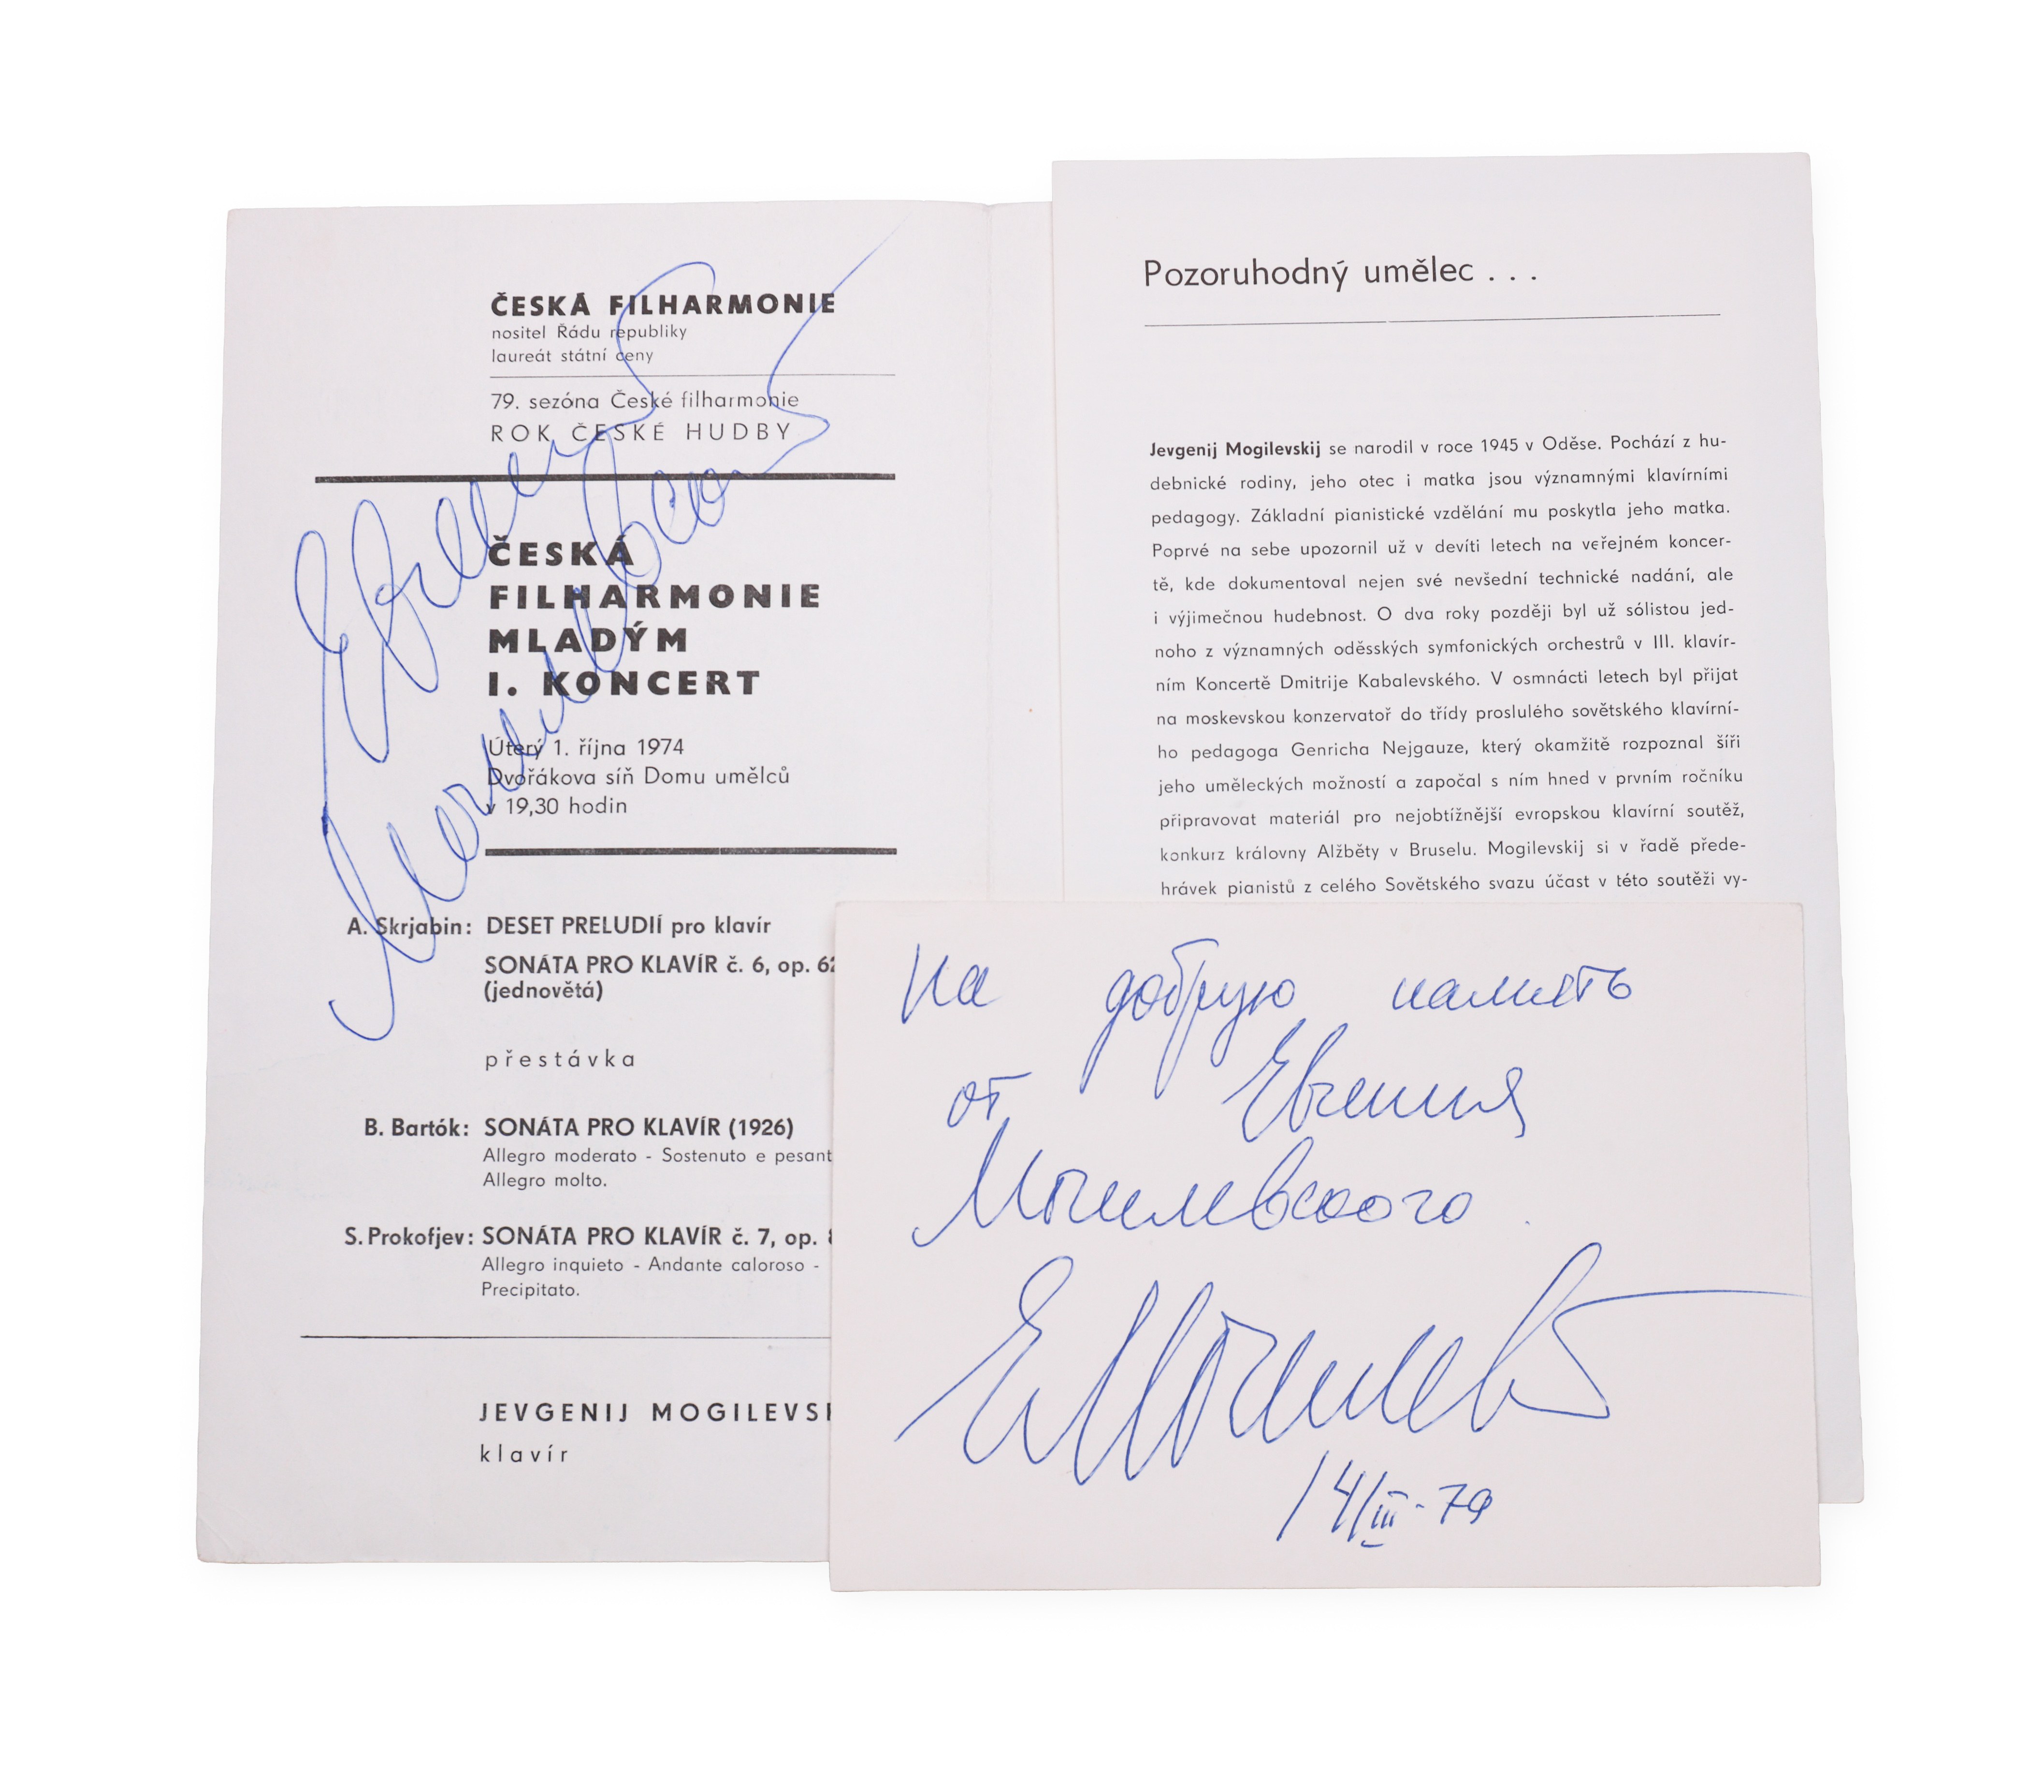 ČESKÁ FILHARMONIE
nositel Řádu republiky
laureát státní ceny
79. sezóna České filharmonie
ROK ČESKÉ HUDBY
ČESKÁ
FILHARMONIE
MLADÝM
I. KONCERT
Úterý 1. října 1974
Dvořákova síň Domu umělců
v 19,30 hodin
A. Skrjabin: DESET PRELUDIÍ pro klavír
SONÁTA PRO KLAVÍR č. 6, op. 62
(jednovětá)
přestávka
B. Bartók: SONÁTA PRO KLAVÍR (1926)
Allegro moderato - Sostenuto e pesant
Allegro molto.
S. Prokofjev: SONÁTA PRO KLAVÍR č. 7, op.
Allegro inquieto - Andante caloroso -
Precipitato.
JEVGENIJ MOGILEVS
klavír
Евгений
Могилевский
Pozoruhodný umělec . . .
Jevgenij Mogilevskij se narodil v roce 1945 v Oděse. Pochází z hu-
debnické rodiny, jeho otec i matka jsou významnými klavírními
pedagogy. Základní pianistické vzdělání mu poskytla jeho matka.
Poprvé na sebe upozornil už v devíti letech na veřejném koncer-
tě, kde dokumentoval nejen své nevšední technické nadání, ale
i výjimečnou hudebnost. O dva roky později byl už sólistou jed-
noho z významných oděsských symfonických orchestrů v III. klavír-
ním Koncertě Dmitrije Kabalevského. V osmnácti letech byl přijat
na moskevskou konzervatoř do třídy proslulého sovětského klavírní-
ho pedagoga Genricha Nejgauze, který okamžitě rozpoznal šíři
jeho uměleckých možností a započal s ním hned v prvním ročníku
připravovat materiál pro nejobtížnější evropskou klavírní soutěž,
konkurz královny Alžběty v Bruselu. Mogilevskij si v řadě přede-
hrávek pianistů z celého Sovětského svazu účast v této soutěži vy-
На добрую память
от Евгения
Могилевского.
ЕМогилев
14/III-79